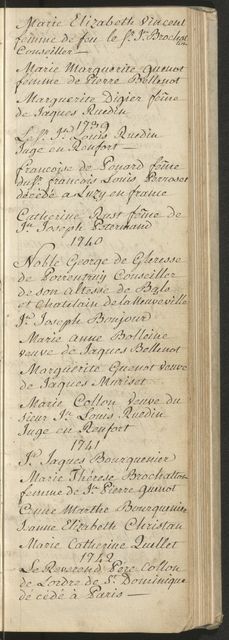 Marie Elizabeth Vincent
femme de feu le Sr. Jn. Brochatton
Conseiller —
Marie Marguerite Quenot
femme de Pierre Bellenot
Marguerite Digier feme
de Jaques Ruedin
1739
Le Sr. Jn. Louis Ruedin
Juge en Renfort —
Francoise de Ponard feme
du Sr. francois Louis Perroset
décédé a Luzy en france
Catherine Rust feme de
Jn. Joseph Petermand
1740
Noble George de Gleresse
de Porrentruy Conseiller
de son altesse de Basle
et Chatelain de la Neuveville
Jn. Joseph Bonjour
Marie anne Bolleine
veuve de Jaques Bellenot
Marguerite Quenot veuve
de Jaques Muriset
Marie Collon veuve du
Sieur Jn. Louis Ruedin
Juge en Renfort
1741
Jn. Jaques Bourguenier
Marie Thérese Brochatton
femme de Jn. Pierre Quenot
Marthe Bourguenier
Jeanne Elizabeth Christan
Marie Catherine Quellet
1742
Le Reverend Pere Collon
de Lordre de St. Dominique
décedé à Paris —